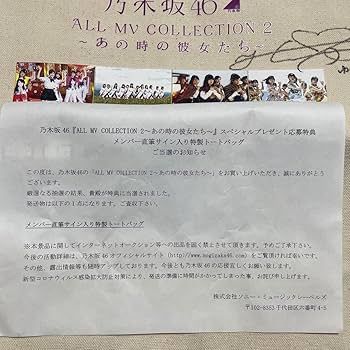 乃木坂46
ALL MV COLLECTION 2
～あの時の彼女たち～
乃木坂46『ALL MV COLLECTION 2～あの時の彼女たち～』スペシャルプレゼント応募特典
メンバー直筆サイン入り特製トートバッグ
ご当選のお知らせ
この度は、乃木坂46の『ALL MV COLLECTION 2～あの時の彼女たち～』をお買い上げいただき、誠にありがとう
ございます。
厳選なる抽選の結果、貴殿が特典に当選されました。
発送物は以下の1点になります。ご査収下さい。
メンバー直筆サイン入り特製トートバッグ
※本景品に関してインターネットオークション等への出品を固く禁止させて頂きます。予めご了承下さい。
今後の活動詳細は、乃木坂46オフィシャルサイト(http://www.nogizaka46.com)をご覧頂ければ幸いです。
その他、露出情報等も随時アップしております。今後とも乃木坂46の応援宜しくお願い致します。
新型コロナウィルス感染拡大防止対策により、発送の準備に時間がかかってしまった事、お詫び申し上げます。
株式会社ソニー・ミュージックレーベルズ
〒102-8353 千代田区六番町4-5